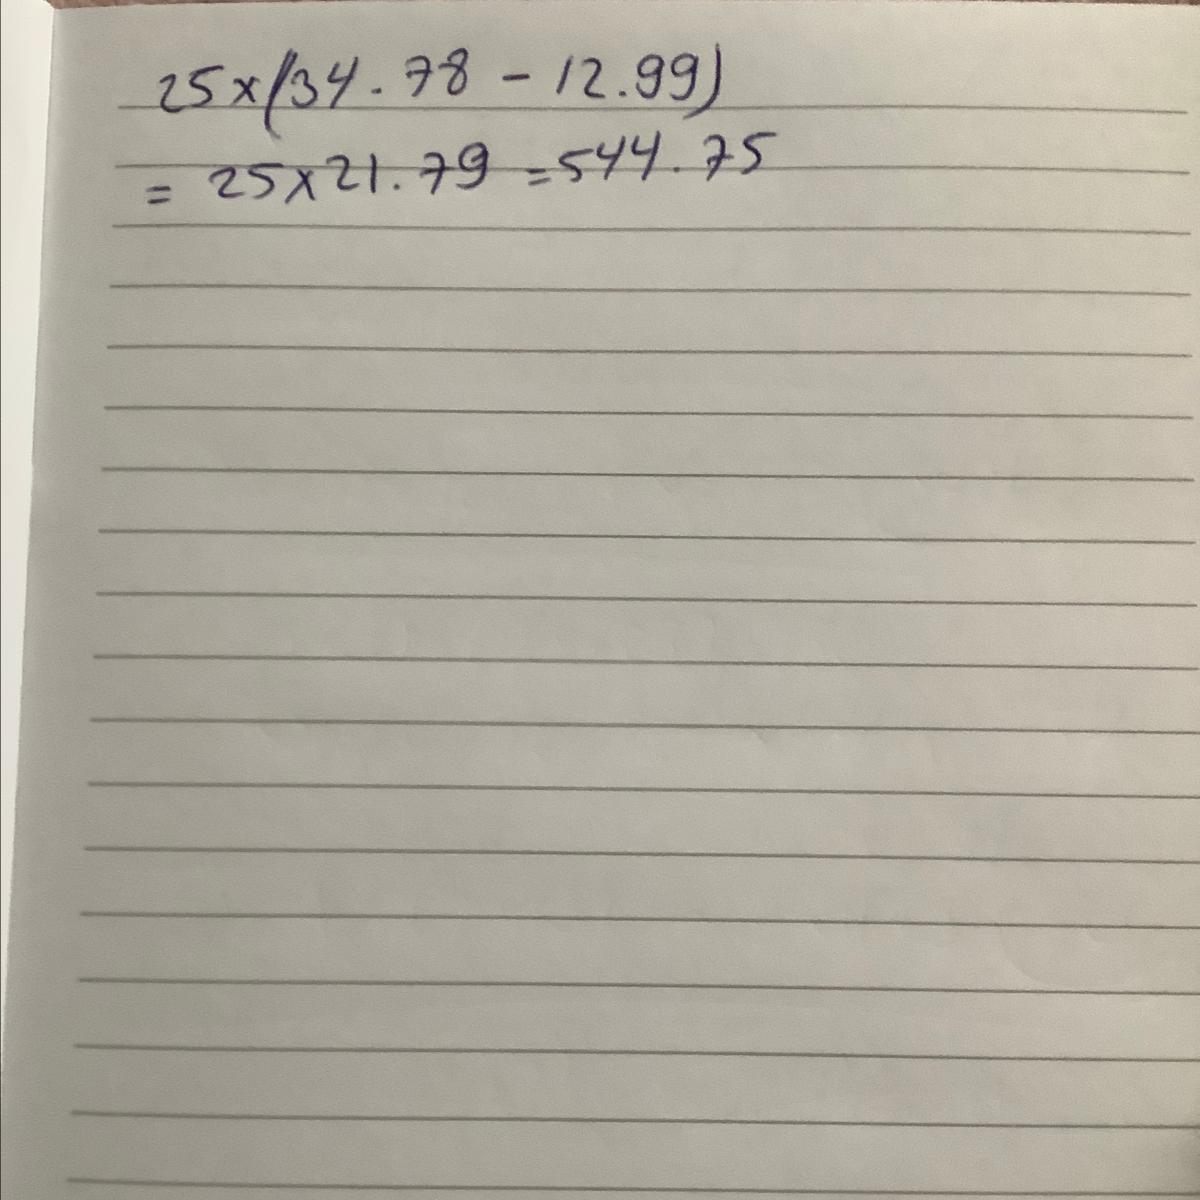 25x(34.78 - 12.99)
= 25x21.79 = 544.75